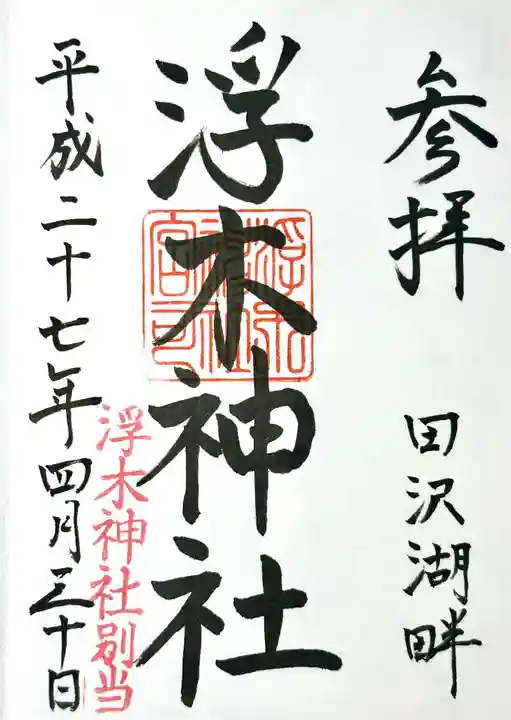 参拝 田沢湖畔
浮木神社
浮木神社別当
平成二十七年四月三十日